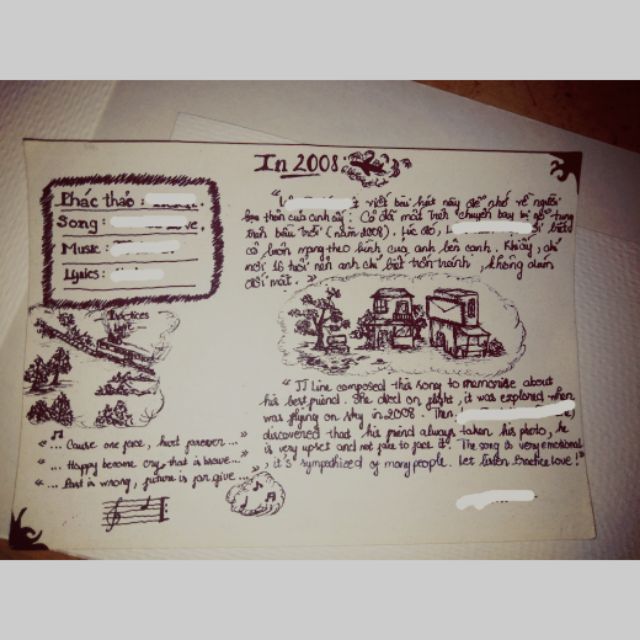 In 2008:
Phác thảo :
Song :
Music :
Lyrics :
viết bài hát này để nhớ về người
bạn thân của anh ấy : Cô đã mất trên chuyến bay bị nổ tung
trên bầu trời (năm 2008). Lúc đó,
cô luôn mang theo hình của anh bên cạnh. Khi ấy, chỉ
mới 16 tuổi nên anh chỉ biết trốn tránh, không dám
đối mặt."
" Line composed this song to memorise about
his best friend. She died on flight, it was explored when
was flying on sky in 2008. Then
discovered that his friend always taken his photo, he
is very upset and not fair to face it. The song is very emotional
, it's sympathized of many people. Let listen Practice love!"
"... Cause one face, hurt forever..."
"... Happy become cry, that is brave..."
"... Past is wrong, future is for give..."